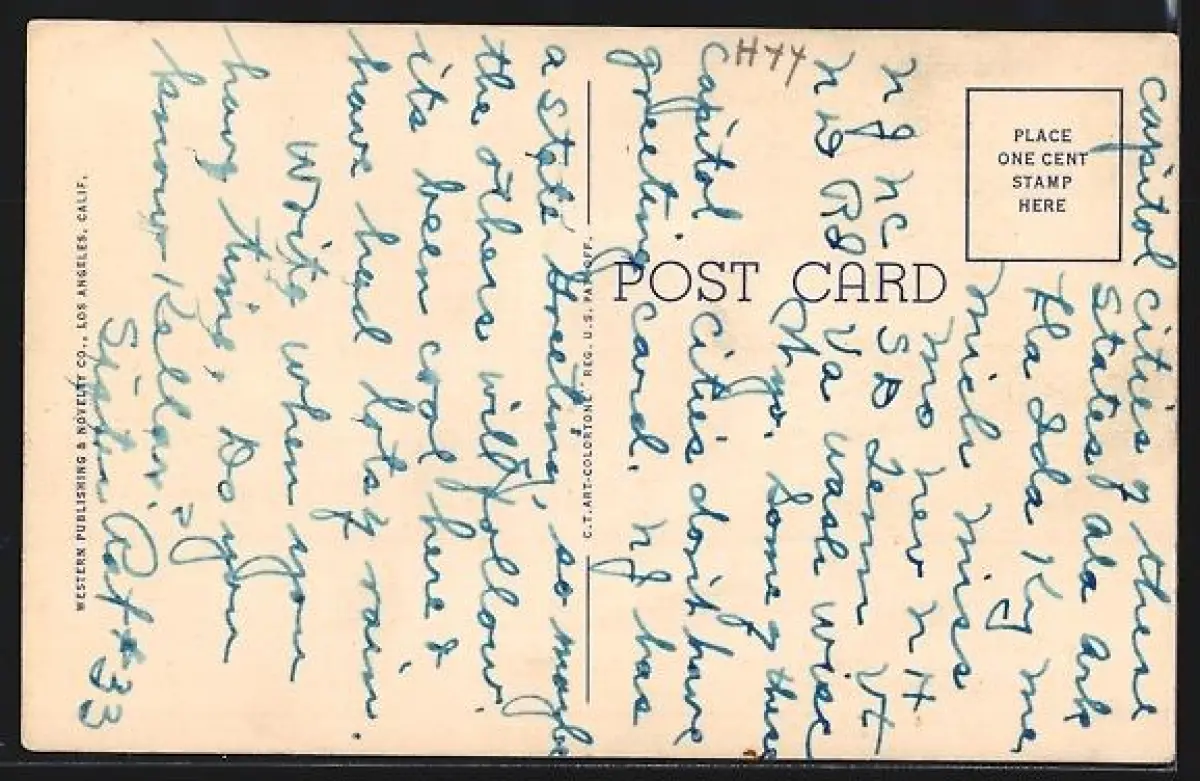 Capitol Cities of these
States, Ala Ark
Fla Ida Ky Me
Mich Miss
Mo Nev N H
N J N C S D Tenn Vt
N D R I Va Wash Wisc
Wyo. Some of these
Capitol Cities don't have
greeting card. N J has
a state Greeting, so maybe
the others will follow.
its been cool here &
have had lots of rain.
Write when you
have time, Do you
know Kellar?
# 33
H44
PLACE
ONE CENT
STAMP
HERE
POST CARD
C. T. ART-COLORTONE REG. U.S. PAT. OFF.
WESTERN PUBLISHING & NOVELTY CO., LOS ANGELES, CALIF.